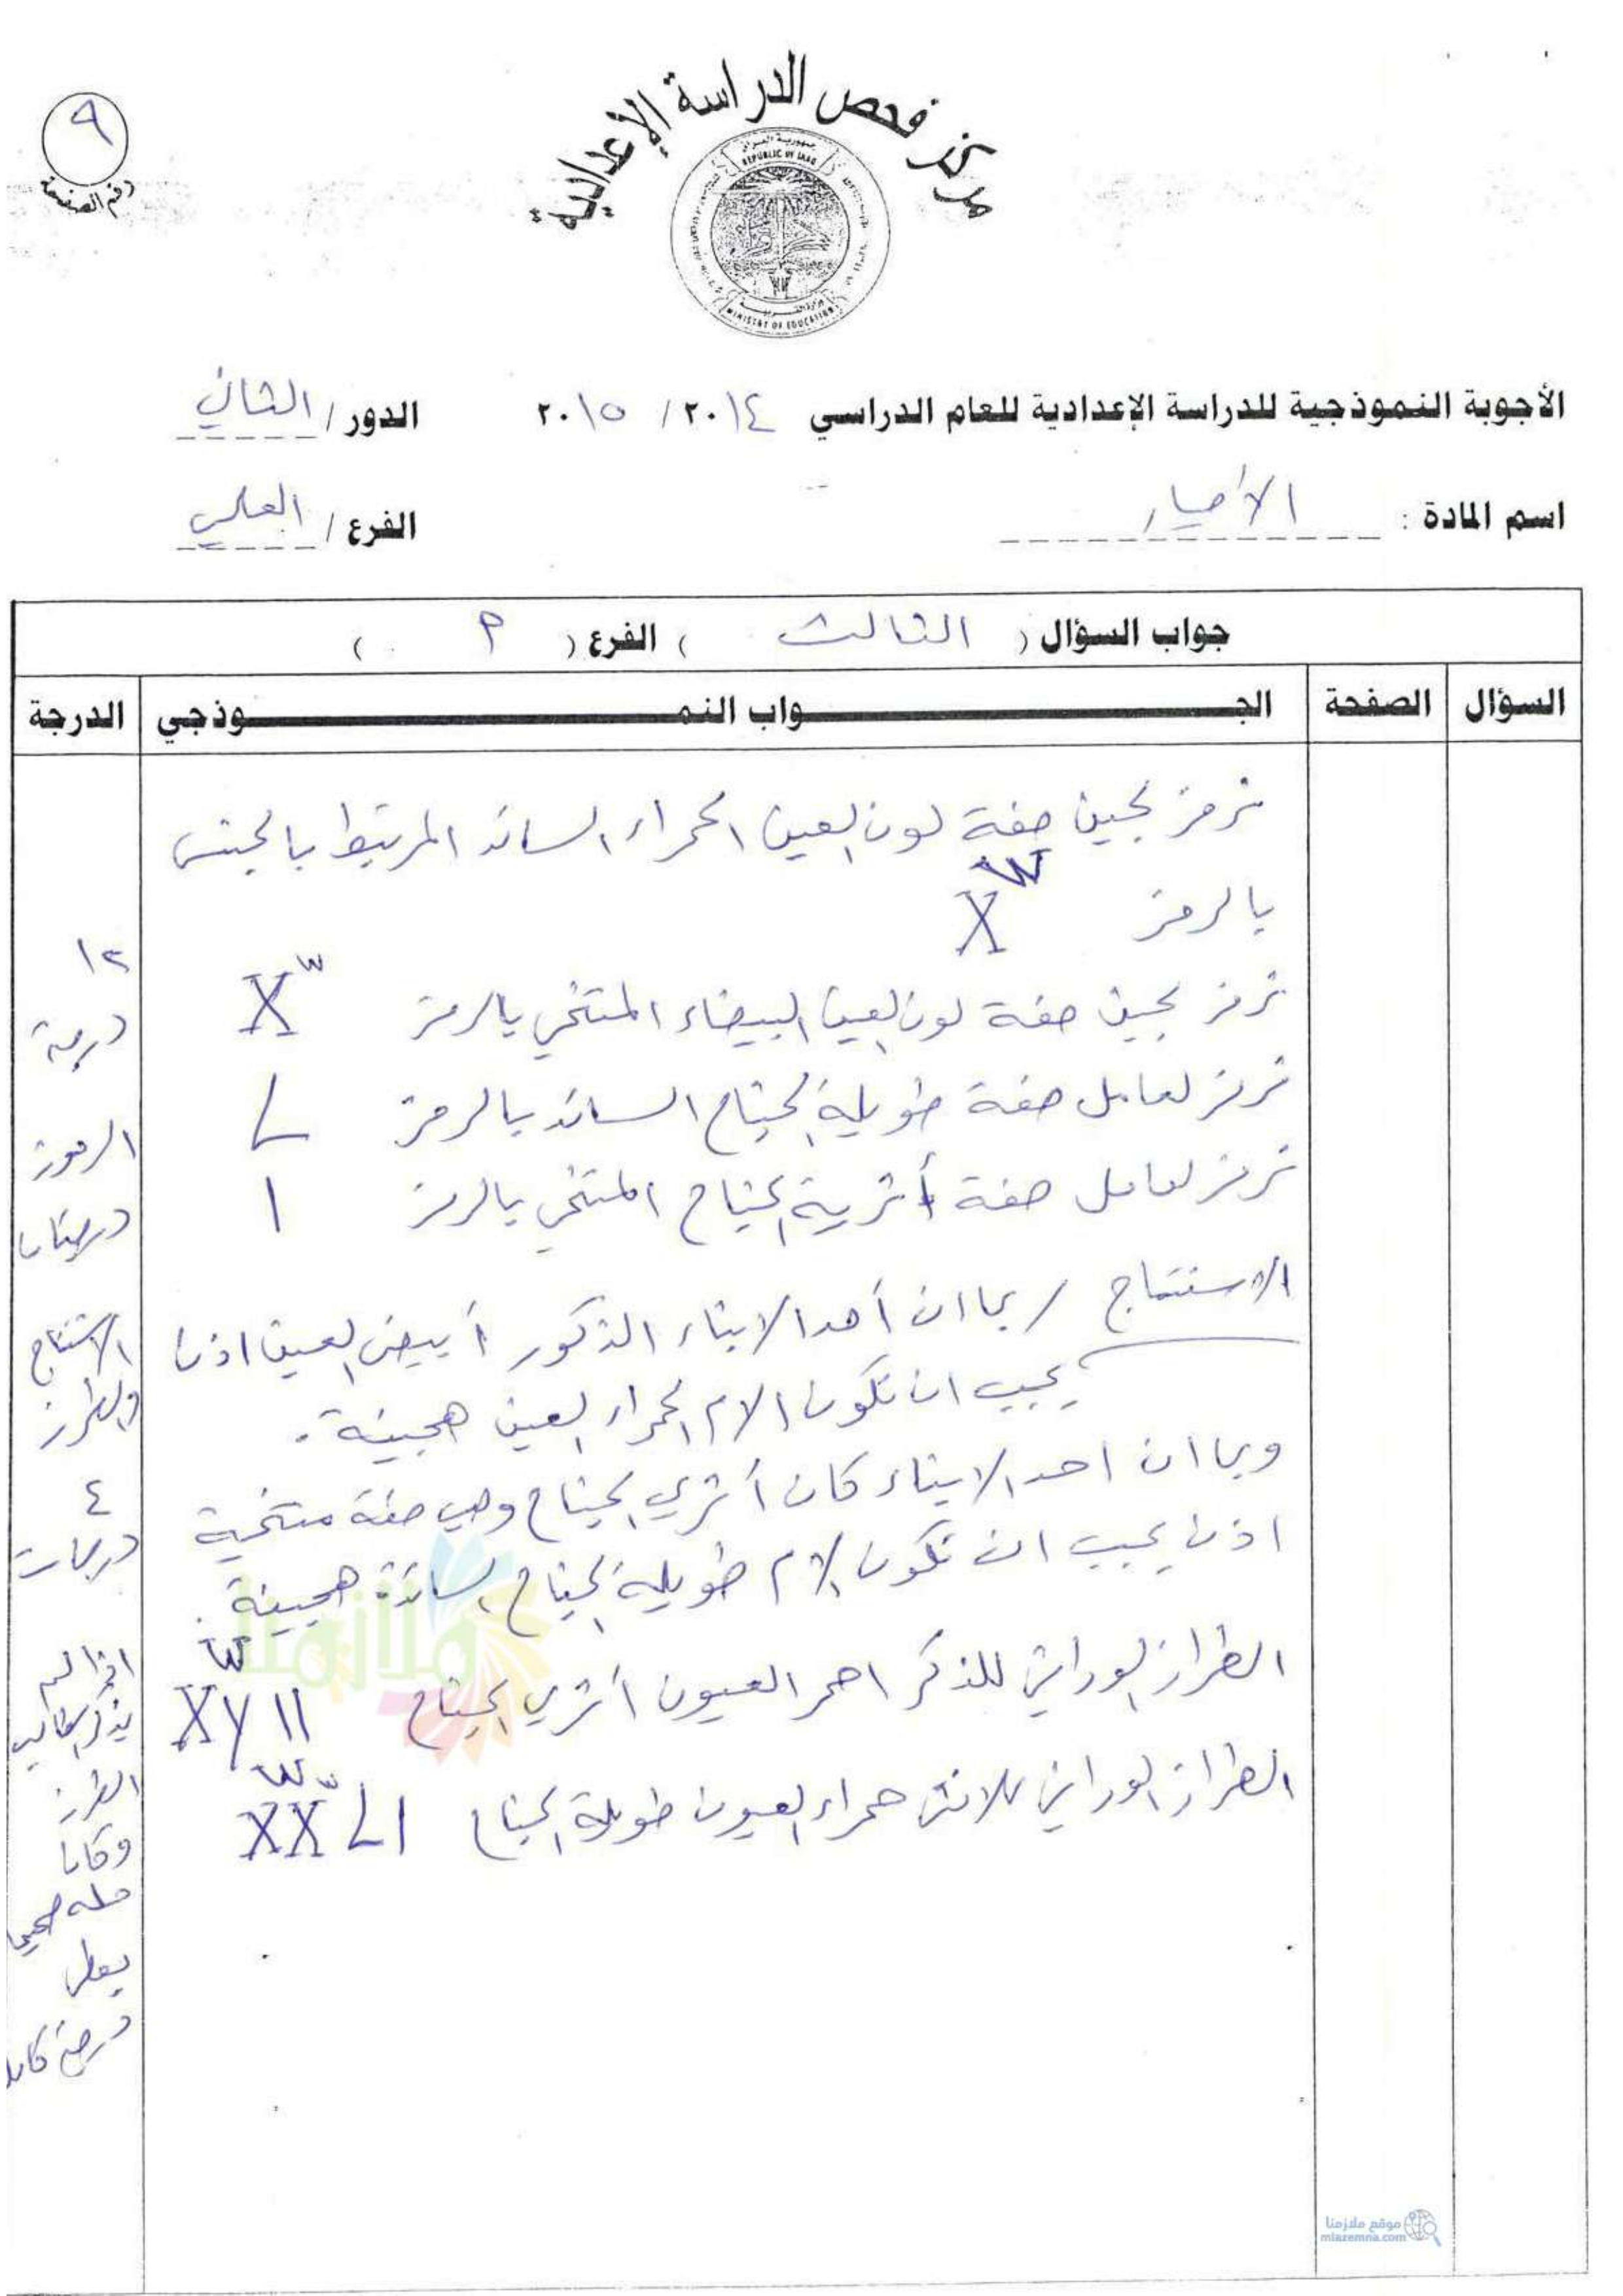 ٩
رقم الصفحة
مركز فحص الدراسة الإعدادية
REPUBLIC OF IRAQ
MINISTRY OF EDUCATION
الأجوبة النموذجية للدراسة الإعدادية للعام الدراسي ٢٠١٤ / ٢٠١٥ الدور / الثاني
اسم المادة : الأحياء الفرع / العلمي
جواب السؤال ( الثالث ) الفرع ( P )
السؤال الصفحة الجـــواب النمـــوذجي الدرجة
نرمز لجين صفة لون العين الحمراء السائد المرتبط بالجنس
بالرمز Xᵂ
نرمز لجين صفة لون العين البيضاء المتنحي بالرمز Xʷ
نرمز لعامل صفة طويلة الجناح السائد بالرمز L
نرمز لعامل صفة أثرية الجناح المتنحي بالرمز l
الاستنتاج / بما ان أحد الابناء الذكور أبيض العين اذن
يجب ان تكون الام الحمراء العين هجينة .
وبما ان احد الابناء كان أثري الجناح وهي صفة متنحية
اذن يجب ان تكون الام طويلة الجناح السائدة هجينة .
الطراز الوراثي للذكر احمر العيون أثري الجناح XᵂY ll
الطراز الوراثي للانثى حمراء العيون طويلة الجناح XᵂXʷ Ll
١٢
درجة
الرموز
درجتان
الاستنتاج
والطرز
٤
درجات
اذا لم
يذكر الطالب
الطرز
وكان
حله صحيحا
يعطى
درجة كاملة
ملازمنا
موقع ملازمنا
mlazemna.com